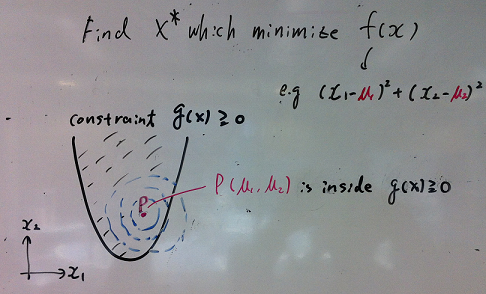 Find x* which minimize f(x)
e.g (x₁-μ₁)²+(x₂-μ₂)²
constraint g(x) ≧ 0
P
P(μ₁, μ₂) is inside g(x)≧0
x₂
x₁